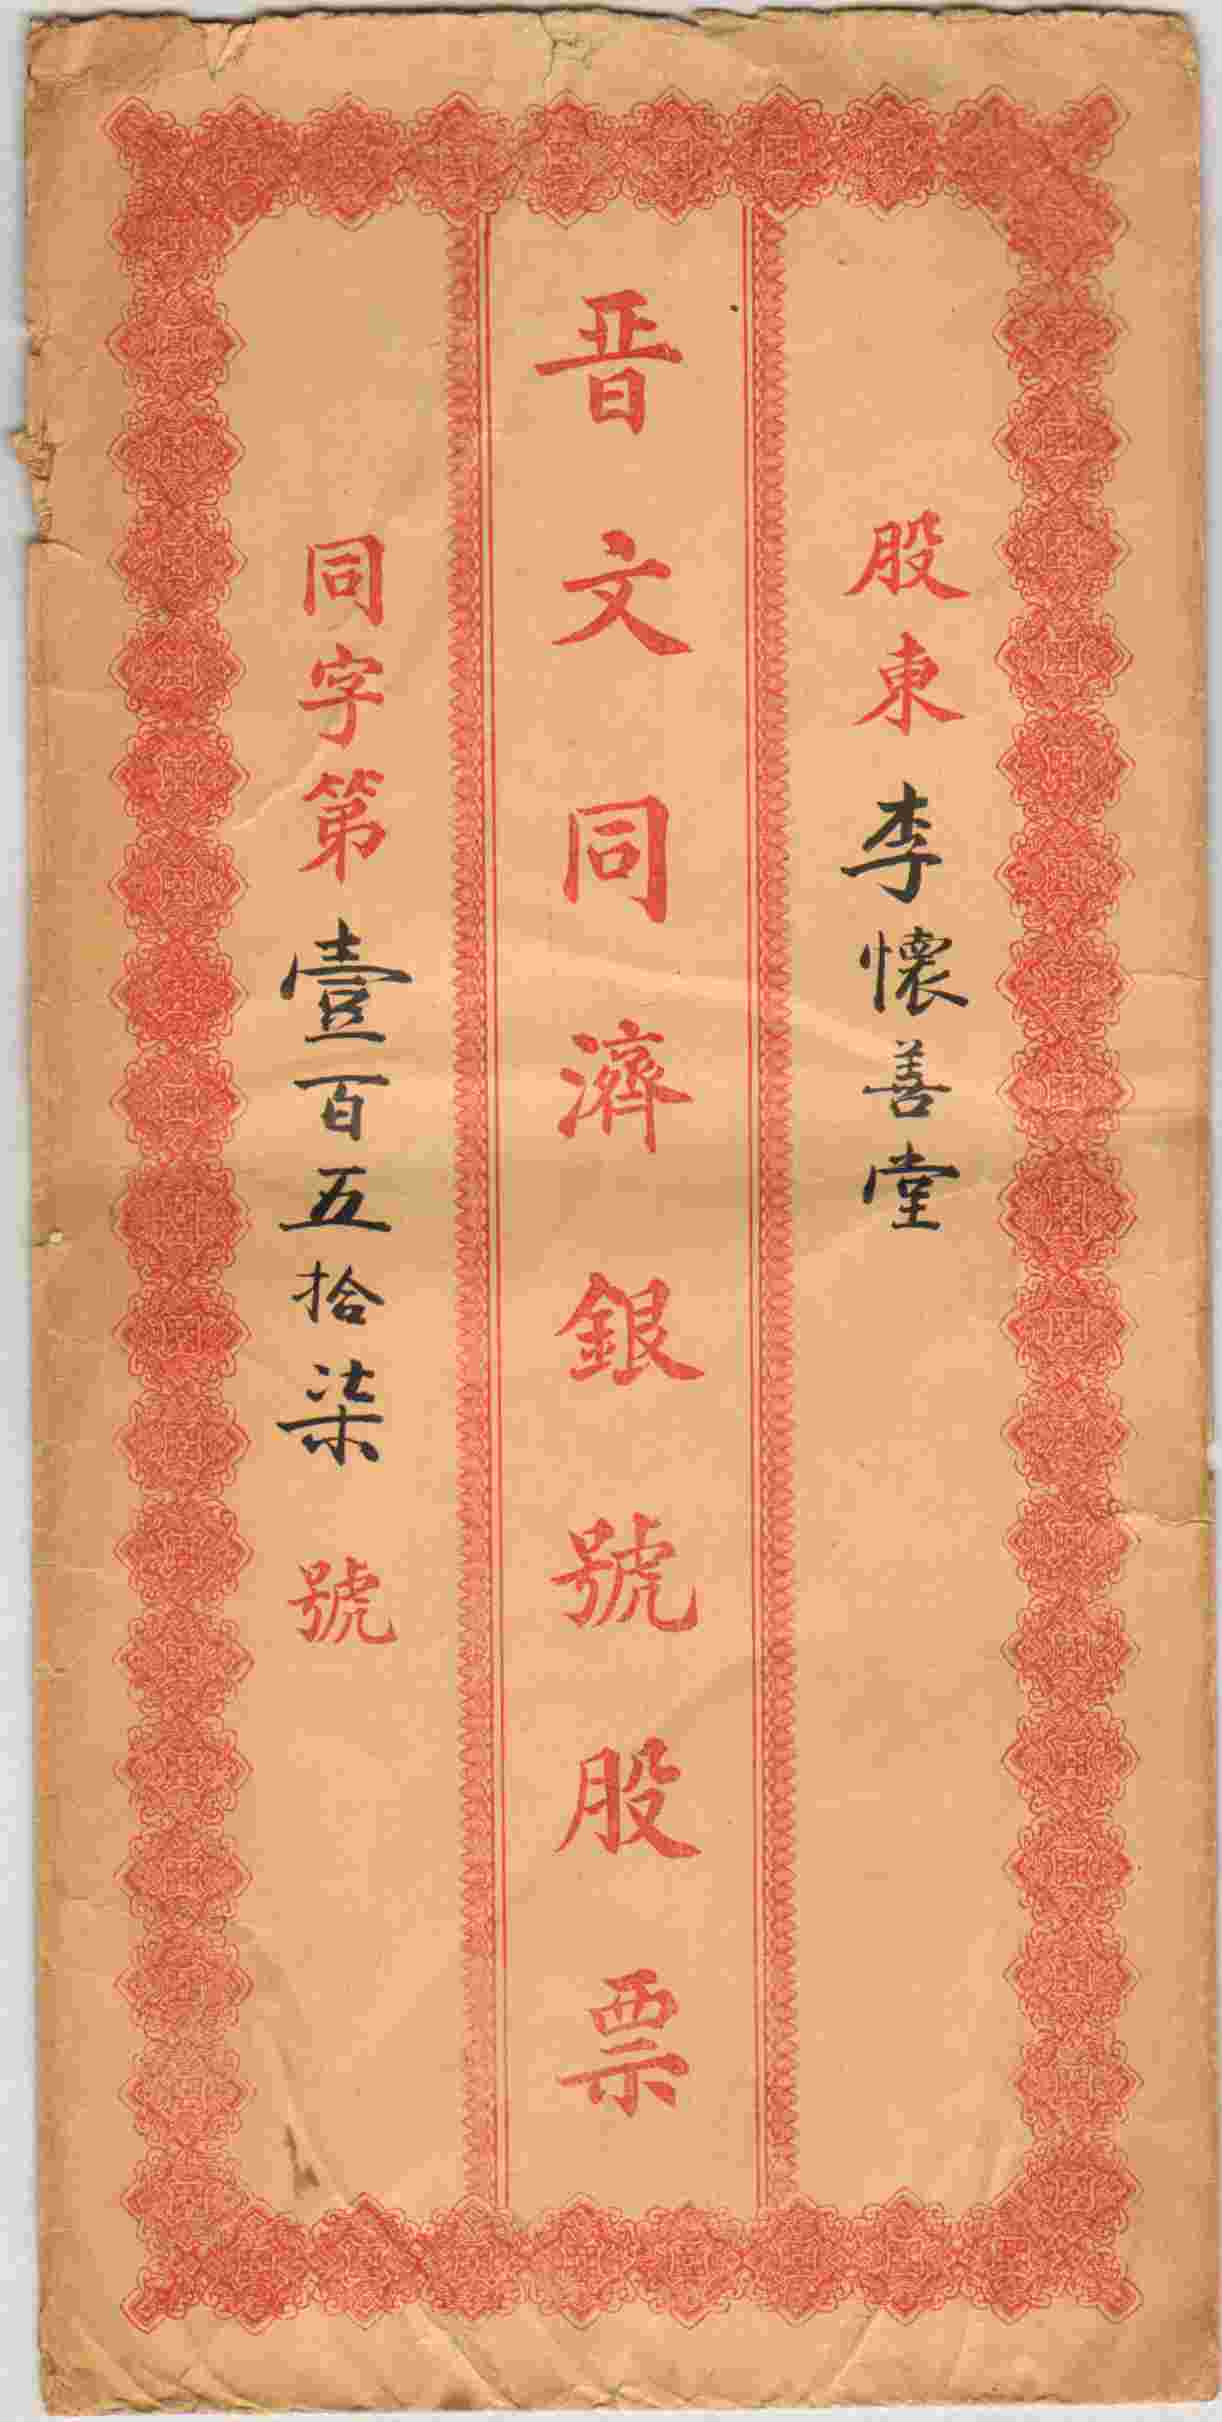 股東李懷善堂
晋文同濟銀號股票
同字第壹百五拾柒號